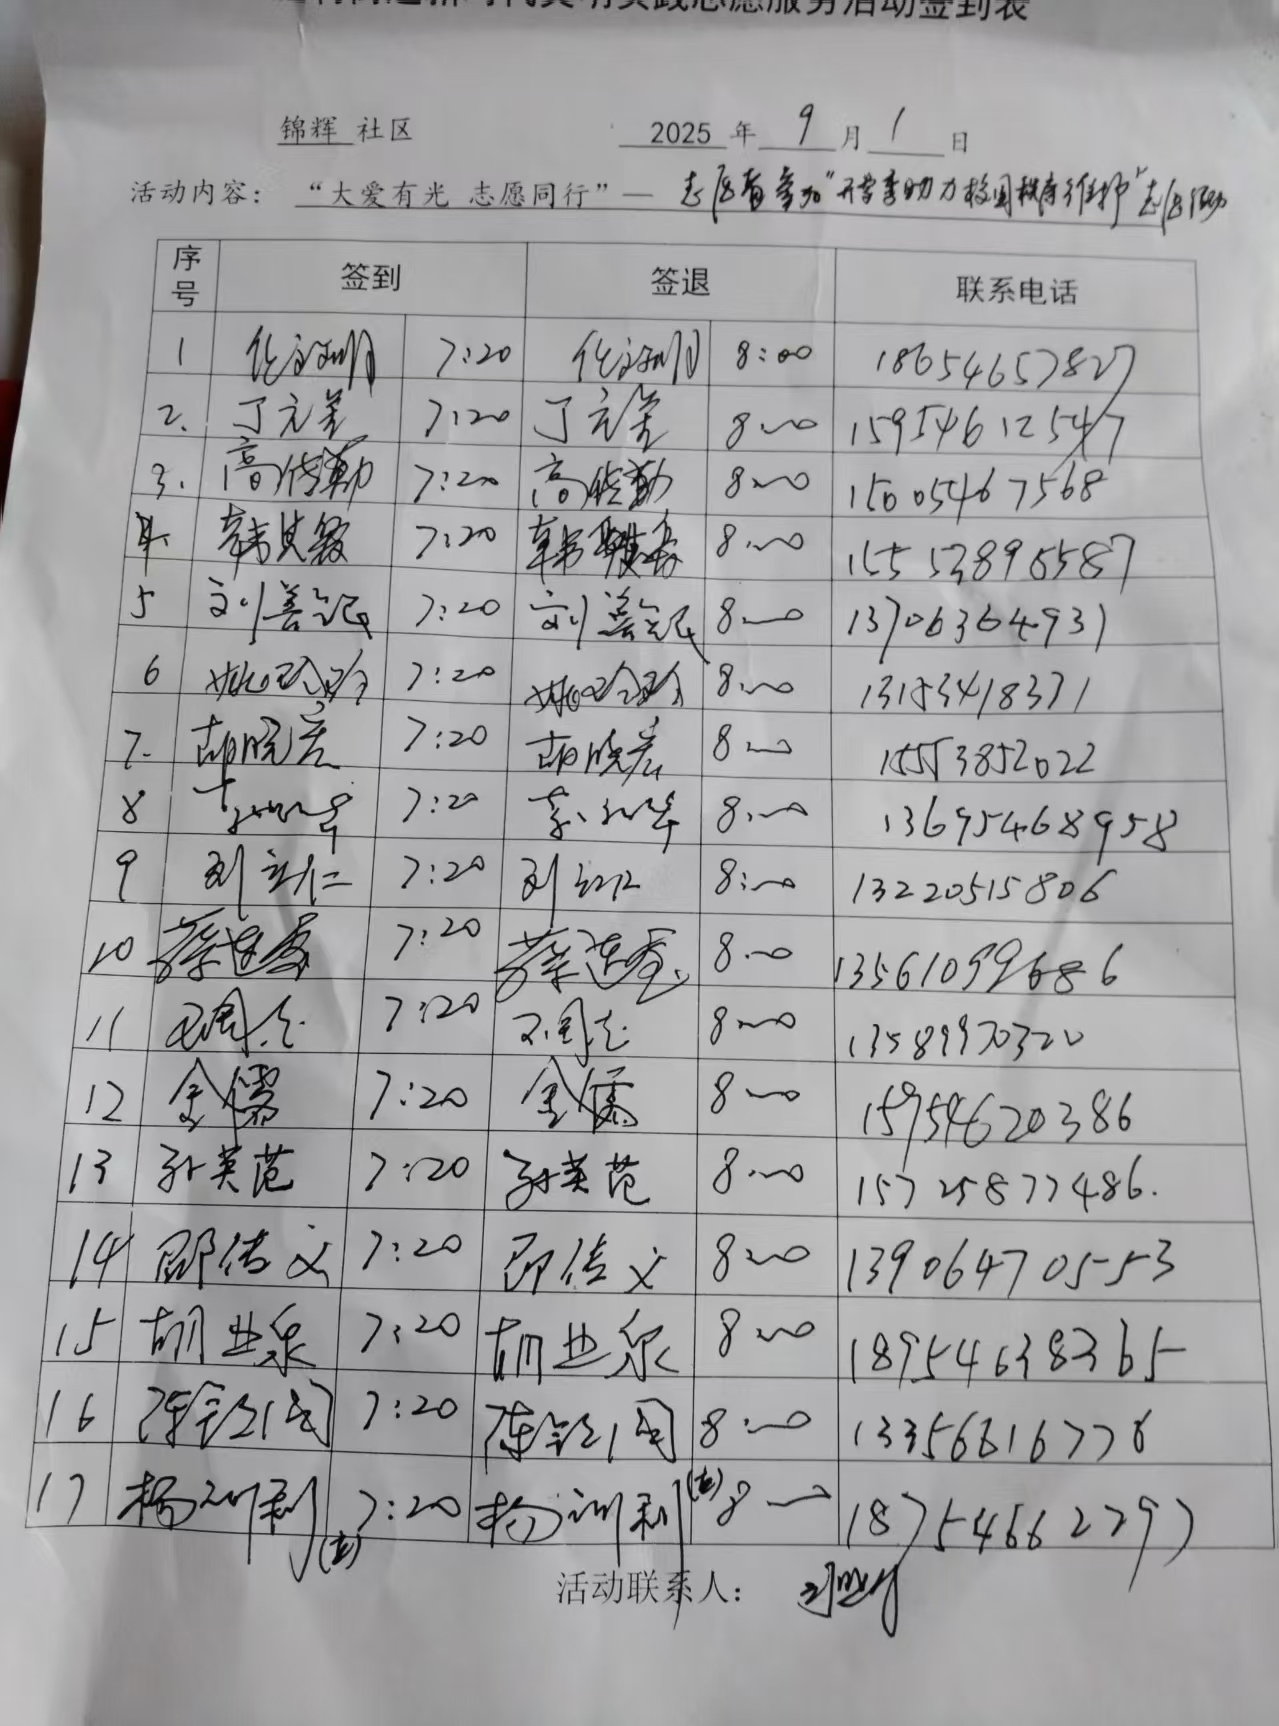 新时代文明实践志愿服务活动签到表
锦辉 社区 2025 年 9 月 1 日
活动内容： “大爱有光 志愿同行”— 志愿者参加“开学季助力校园秩序维护”志愿活动
序号 签到 签退 联系电话
1 7:20 8:00 18654657827
2. 丁元美 7:20 丁元美 8:00 15954612547
3. 高传勤 7:20 高传勤 8:00 15005467568
4. 韩其敏 7:20 韩 8:00 15553896587
5 刘善记 7:20 刘善记 8:00 13706364931
6 姚玲玲 7:20 姚玲玲 8:00 13153418371
7. 胡晓宏 7:20 胡晓宏 8:00 15553852022
8 7:20 李 8:00 13695468958
9 刘立仁 7:20 刘立仁 8:00 13220515806
10 7:20 8:00 13561099686
11 7:20 8:00 13589970320
12 金儒 7:20 金儒 8:00 15954620386
13 孙英范 7:20 孙英范 8:00 15725877486.
14 邵传文 7:20 邵传文 8:00 13906470553
15 胡业泉 7:20 胡业泉 8:00 18954638365
16 陈 7:20 陈 8:00 13356616776
17 杨训利 (左) 7:20 杨训利 (左) 8:00 18754662297
活动联系人：